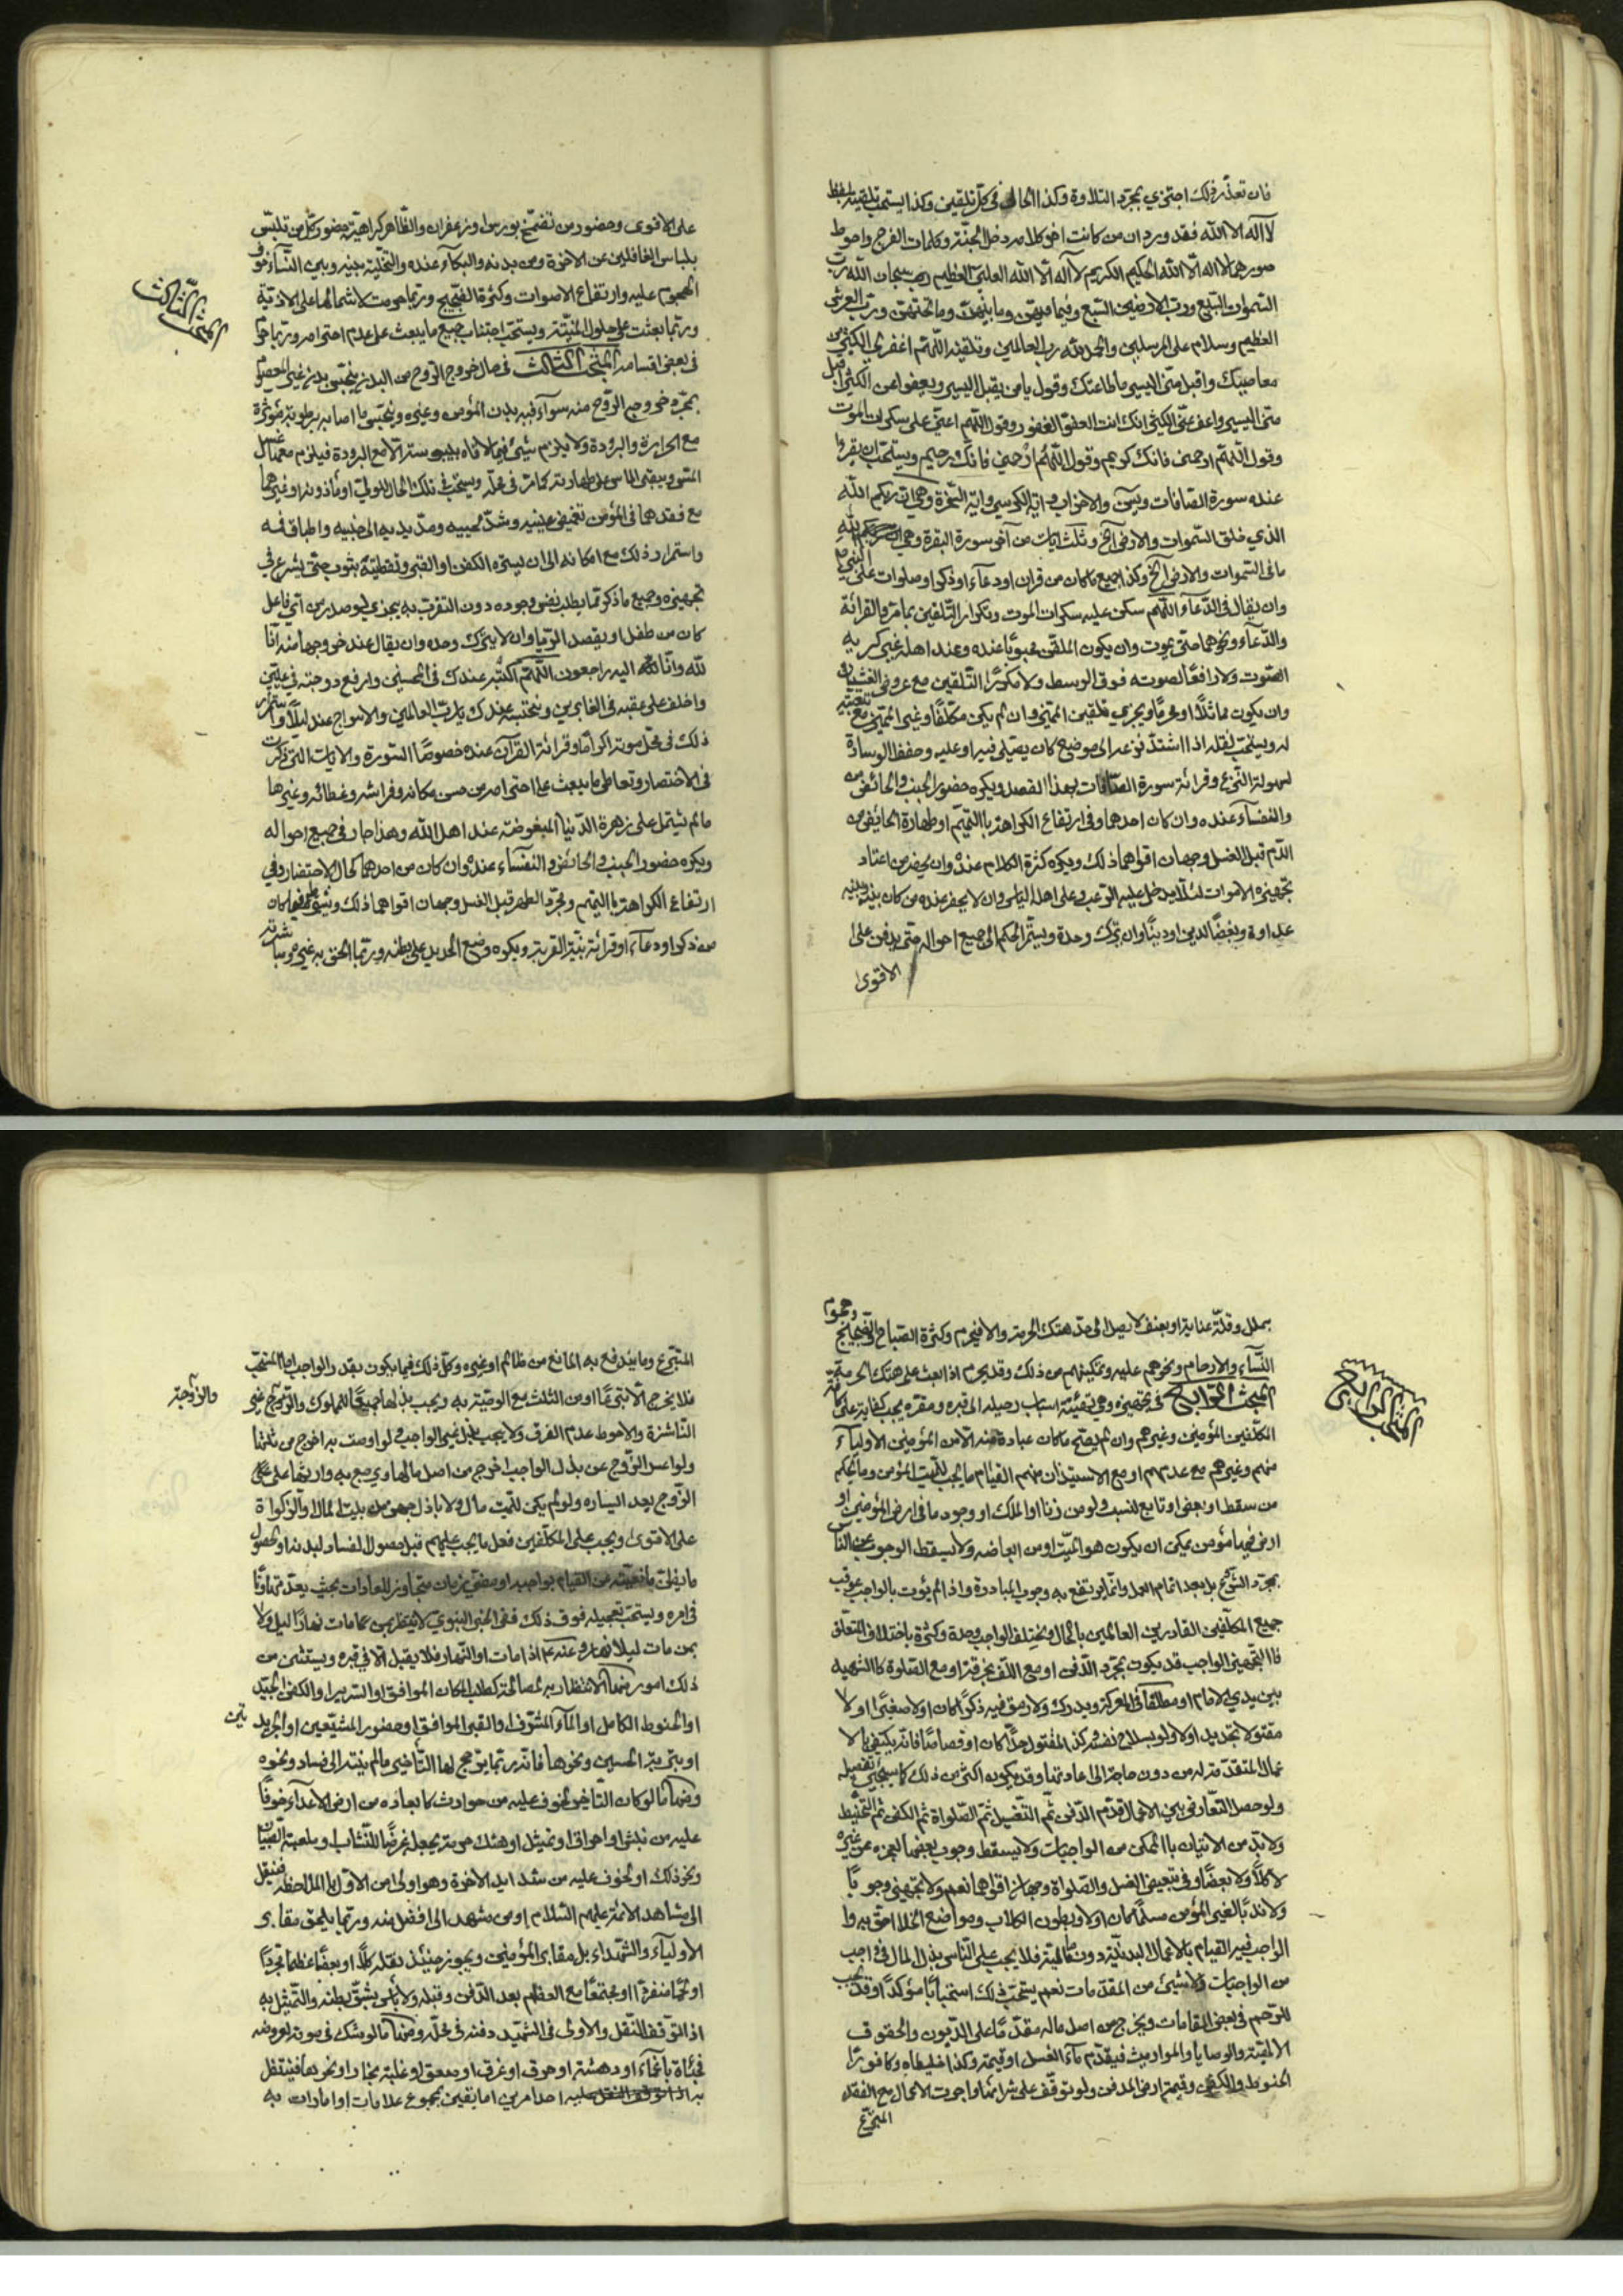 فان تعذّر ذلك اجتزي بمجرّد التلاوة وكذا الحال في كلّ تلقين وكذا يستحبّ تلقينه بلفظ
لا اله الا الله فقد ورد ان من كانت اخر كلامه دخل الجنّة وكلمات الفرج واحوط
صورها لا اله الّا الله الحكيم الكريم لا اله الّا الله العليّ العظيم سبحان الله ربّ
السّموات السّبع وربّ الارضين السّبع وفيما فيهنّ وما بينهنّ وما تحتهنّ وربّ العرش
العظيم وسلام على المرسلين والحمد لله ربّ العالمين وتلقينه اللّهم اغفر لي الكثير من
معاصيك واقبل منّي اليسير من طاعتك وقول يا من يقبل اليسير ويعفو عن الكثير اقبل
منّي اليسير واعف عنّي الكثير انك انت العفوّ الغفور وقول اللّهم اعنّي على سكرات الموت
وقول اللّهم ارحمني فانك كريم وقول اللّهم ارحمني فانّك رحيم ويستحبّ ان يقرا
عنده سورة الصّافات ويسۤ والاحزاب واية الكرسي واية السّخرة وهي انّ ربكم الله
الذي خلق السّموات والارض الخ وثلث ايات من آخر سورة البقرة وهي لله
ما في السّموات والارض الخ وكذا جميع ما كان من قران او دعآء او ذكر او صلوات على النبي
وان يقال في الدّعآء اللّهم سكّن عليه سكرات الموت وتكرار التّلقين بما مرّ والقرائة
والدّعآء ونحوهما حتّى يموت وان يكون الملقّن محبوبًا عنده وعند اهله غير كريه
الصّوت ولا رافعًا لصوته فوق الوسط ولا مكثرًا التّلقين مع عروض الغشيان
وان يكون مماثلًا او محرمًا ويجري تلقين المميّز وان لم يكن مكلّفًا وغير المميّز مع
له ويستحبّ نقله اذا اشتدّ نزعه الى موضع كان يصلّي فيه او عليه وخفض الوسادة
لسهولة النّزع وقرائة سورة الصّافات بهذا القصد ويكره حضور الجنب والحائض
والنفسآء عنده وان كان احدهما وفي ارتفاع الكراهة بالتيمّم او طهارة الحائض من
الدّم قبل الغسل وجهان اقواهما ذلك ويكره كثرة الكلام عنده وان يحضر من اعتاد
تجهيزه الاموات لئلّا يدخل عليه الرّعب وعلى اهله الياس وان لا يحضر عنده من كان بينه وبينه
عداوة وبغضًا لدين او دنيًا وان يترك وحدة ويستمرّ الحكم الى جميع احواله حتّى يدفن على
الاقوى
على الاقوى وحضور من تضمّخ بورس او زعفران والظّاهر كراهيّة حضور كلّ من تلبّس
بلباس الغافلين عن الاخرة ومس بدنه والبكآء عنده والتخلية بينه وبين النّسآء خوف
الهجوم عليه وارتفاع الاصوات وكثرة الضّجيج وربّما حرمت لاشتمالها على الاذيّة
وربّما بعثت على حلول المنيّة ويستحبّ اجتناب جميع ما يبعث على عدم احترامه وربّما حرم
في بعض اقسامه المبحث الثالث في حال خروج الرّوح من البدن ينجس بدن غير المعصوم
بمجرّد خروج الرّوح منه سوآء فيه بدن المؤمن وغيره وينجّس ما اصابه برطوبة مؤثرة
مع الحرارة والبرودة ولا يلزم شيئ فيما لاقاه بيبوسة الّا مع البرودة فيلزم معها غسل
المسّ ويبقى الماسّ على طهارته كما مرّ في محلّه ويستحبّ في تلك الحال للوليّ او مأذونه او غيرهما
مع فقدهما في المؤمن تغميض عينيه وشدّ لحييه ومدّ يديه الى جنبيه واطباق فمه
واستمرار ذلك مع امكانه الى ان يستره الكفن او القبر وتغطيته بثوب حتّى يشرع في
تجهيزه وجميع ما ذكر ممّا يطلب نفس وجوده دون التقرّب به يجزي لو صدر من اي فاعل
كان من طفل او بقصد الرّيا وان لا يترك وحده وان يقال عند خروجها منه انّا
لله وانّا اليه راجعون اللّهم اكتبه عندك في المحسنين وارفع درجته في عليّين
واخلف على عقبه في الغابرين ونحتسبه عندك يا ربّ العالمين والاسراج عند ليلًا واستمرار
ذلك في محلّ موته اكرامًا وقرائة القرآن عنده خصوصًا السّورة والايات التي ذكرت
في الاحتضار وتعاطي ما يبعث على احترامه من حسن مكانه وفراشه وغطائه وغيرها
ما لم يشتمل على زهرة الدّنيا المبغوضة عند اهل الله وهذا جار في جميع احواله
ويكره حضور الجنب والحائض والنفسآء عنده وان كان من احدهما كحال الاحتضار وفي
ارتفاع الكراهة بالتيمم وبمجرّد الطهر قبل الغسل وجهان اقواهما ذلك
من ذكر او دعآء او قرائة بنيّة القربة ويكره وضع الحديد على بطنه وربّما الحق به غيره
المبحث الثالث
بملل وقلّة عناية او بعنف لا يصل الى حدّ هتك الحرمة والا فيحرم وكثرة الصّياح والضّجيج وهجوم
النّسآء والارحام ونحوهم عليه وتمكينهم من ذلك وقد يحرم اذا بعث على هتك الحرمة
المبحث الرّابع في تجهيزه وهي تهيئة اسباب رحيله الى قبره ومقرّه يجب كفاية على كافة
المكلّفين المؤمنين وغيرهم وان لم يصحّ ما كان عبادة منه الّا من المؤمنين الاوليآء
منهم وغيرهم مع عدمهم او مع الاستيذان منهم القيام ما يجب للميّت المؤمن وما بحكمه
من سقط او بعض او تابع لنسب ولو من زنا او الملك او وجود ما في ارض المؤمنين او
ارض فيها مؤمن يمكن ان يكون هو الميّت او من ابعاضه ولا يسقط الوجوب عن النّاس
بمجرّد الشّروع بل بعد اتمام العمل وانّما يرتفع به وجوب المبادرة واذا لم يؤت بالواجب عوقب
جميع المكلّفين القادرين العالمين بالحال ويختلف الواجب وحدة وكثرة باختلاف المتعلّق
فالتجهيز الواجب قد يكون بمجرّد الدّفن او مع اللّف بخرقة او مع الصّلوة كالشهيد
بين يدي الامام او مطلقًا في المعركة ويدرك ولا رمق فيه ذكرًا كان او لا صغيرًا او لا
مقتولا بحديد او لا ولو بسلاح نفسه وكذا المقتول حدًّا كان او قصاصًا فانّه يكتفي بالا
عمال المتقدّمة له من دون حاجة الى اعادتها وقد يكون اكثر من ذلك كما سيجيئ تفصيله
ولو حصل التّعارض بين الاعمال قدّم الدّفن ثمّ التّغسيل ثمّ الصّلواة ثمّ الكفن ثمّ التحنيط
ولا بدّ من الاتيان بالممكن من الواجبات ولا يسقط وجوب بعضها لعجزه عن غيره
لا كلًّا ولا بعضًا وفي تبعيض الغسل والصّلواة وجهان اقواهما نعم ولا تجهيز وجوبًا
ولا ندبًا لغير المؤمن مسلمًا كان او لا وبطون الكلاب ومواضع الخلا احقّ به وا
الواجب فيه القيام بالاعمال البدنيّة دون الماليّة فلا يجب على النّاس بذل المال في واجب
من الواجبات ولا شيئ من المقدّمات نعم يستحبّ ذلك استحبابًا مؤكدًا وقد يجب
للرّحم في بعض المقامات ويخرج من اصل ماله مقدّمًا على الدّيون والحقوق
الالهيّة والوصايا والمواريث فيقدّم مآء الغسل او قيمته وكذا خليطاه وكافور
الحنوط والكفن وقيمة ارض المدفن ولو توقّف على شرائها واجرت الاعمال مع الفقد
المتبرّع
المبحث الرابع
المتبرّع وما يندفع به المانع من ظالم او غيره وكلّ ذلك فيما يكون بقدر الواجب امّا المستحبّ
فلا يخرج الّا تبرّعًا او من الثلث مع الوصيّة به ويجب بذلها جميعًا للمملوك والزّوجة غير
والزّوجة
النّاشزة والاحوط عدم الفرق ولا يجب بذل غير الواجب ولو اوصت به اخرج من ثلثها
ولو اعسر الزّوج عن بذل الواجب اخرج من اصل مالها
الزّوج بعد اليسار ولو لم يكن للميّت مال ولا باذل جهّز من بيت المال او الزكواة
على الاقوى ويجب على المكلّفين فعل ما يجب عليهم قبل حصول الفساد لبدنه او حصول
القيام بواجبه او مضي زمان متجاوز للعادات بحيث يعدّ تهاونًا
في امره ويستحبّ تعجيله فوق ذلك ففي الخبر النبوي لا ينتظر بمن مات نهارًا ليل ولا
بمن مات ليلا نهار وعنه اذا مات اوّل النّهار فلا يقيل الّا في قبره ويستثنى من
ذلك امور منها الانتظار به لمصالحة كطلب المكان الموافق او السّرير او الكفن الجيّد
او الحنوط الكامل او المآء المشرّف او القبر الموافق او حضور المشيّعين او الجريدتين
او تربة الحسين ونحوها فانه ربّما يرجح لها التّأخير ما لم ينته الى فساد ونحوه
ومنها ما لو كان التّاخير لخوف عليه من حوادث كابعاده من ارض الاعدآء خوفًا
عليه من نبش او احراق او تمثيل او هتك حرمته بجعله غرضًا للنّشاب وملعبة الصّبيان
ونحو ذلك او لخوف عليه من شدايد الاخرة وهو اولى من الاوّل بالملاحظة فينقل
الى مشاهد الائمّة عليهم السّلام او من مشهد الى افضل منه وربّما يلحق مقابر
الاوليآء والشّهداء بل مقابر المؤمنين ويجوز حينئذ نقله كلًّا او بعضًا عظمًا مجرّدًا
او لحمًا منفردًا او مجتمعًا مع العظام بعد الدّفن وقبله ولا باس بشقّ بطنه والتّمثيل به
اذا توقّف النّقل والاولى في الشّهيد دفنه في محلّه ومنها ما لو شك في موته لعروضه
فجئاة باغمآء او دهشة او حرق او غرق او صعق او غلبة بخار او نحوها فينتظر
به احد امرين اما يقين بمجموع علامات او امارات به